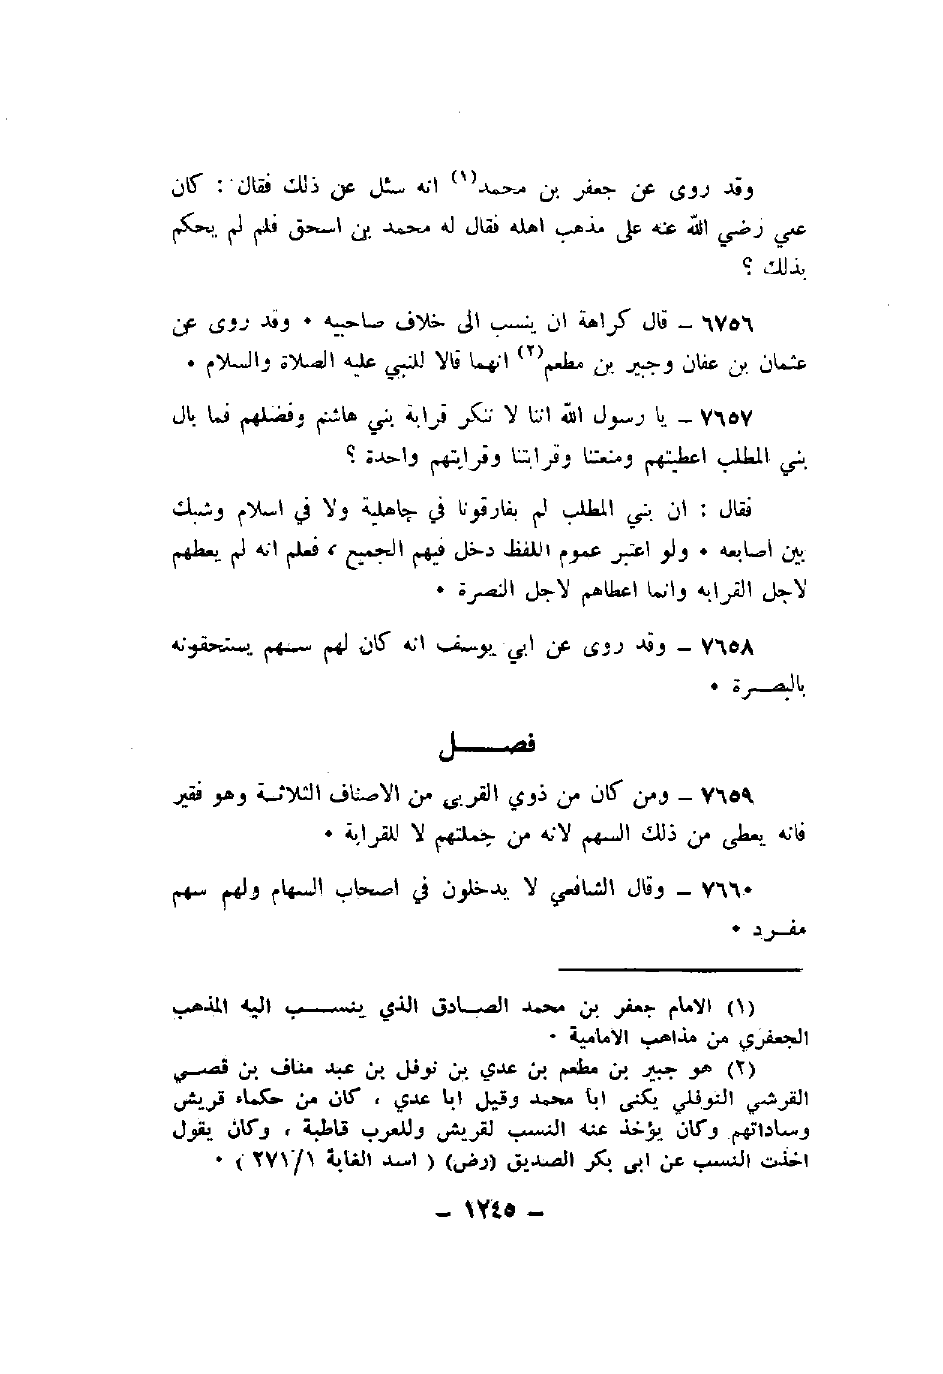 وقد روى عن جعفر بن محمد(١) انه سئل عن ذلك فقال : كان
علي رضي الله عنه على مذهب اهله فقال له محمد بن اسحق فلم لم يحكم
بذلك ؟
٦٧٥٦ ــ قال كراهة ان ينسب الى خلاف صاحبيه ٠ وقد روى عن
عثمان بن عفان وجبير بن مطعم(٢) انهما قالا للنبي عليه الصلاة والسلام ٠
٧٦٥٧ ــ يا رسول الله اننا لا ننكر قرابة بني هاشم وفضلهم فما بال
بني المطلب اعطيتهم ومنعتنا وقرابتنا وقرابتهم واحدة ؟
فقال : ان بني المطلب لم يفارقونا في جاهلية ولا في اسلام وشبك
بين اصابعه ٠ ولو اعتبر عموم اللفظ دخل فيهم الجميع ، فعلم انه لم يعطهم
لاجل القرابه وانما اعطاهم لاجل النصرة ٠
٧٦٥٨ ــ وقد روى عن ابي يوسف انه كان لهم سهم يستحقونه
بالبصرة ٠
فصل
٧٦٥٩ ــ ومن كان من ذوي القربى من الاصناف الثلاثة وهو فقير
فانه يعطى من ذلك السهم لانه من جملتهم لا للقرابة ٠
٧٦٦٠ ــ وقال الشافعي لا يدخلون في اصحاب السهام ولهم سهم
مفرد ٠
(١) الامام جعفر بن محمد الصادق الذي ينسب اليه المذهب
الجعفري من مذاهب الامامية ٠
(٢) هو جبير بن مطعم بن عدي بن نوفل بن عبد مناف بن قصي
القرشي النوفلي يكنى ابا محمد وقيل ابا عدي ، كان من حكماء قريش
وساداتهم وكان يؤخذ عنه النسب لقريش وللعرب قاطبة ، وكان يقول
اخذت النسب عن ابي بكر الصديق (رض) ( اسد الغابة ٢٧١/١ ) ٠
ــ ١٢٤٥ ــ